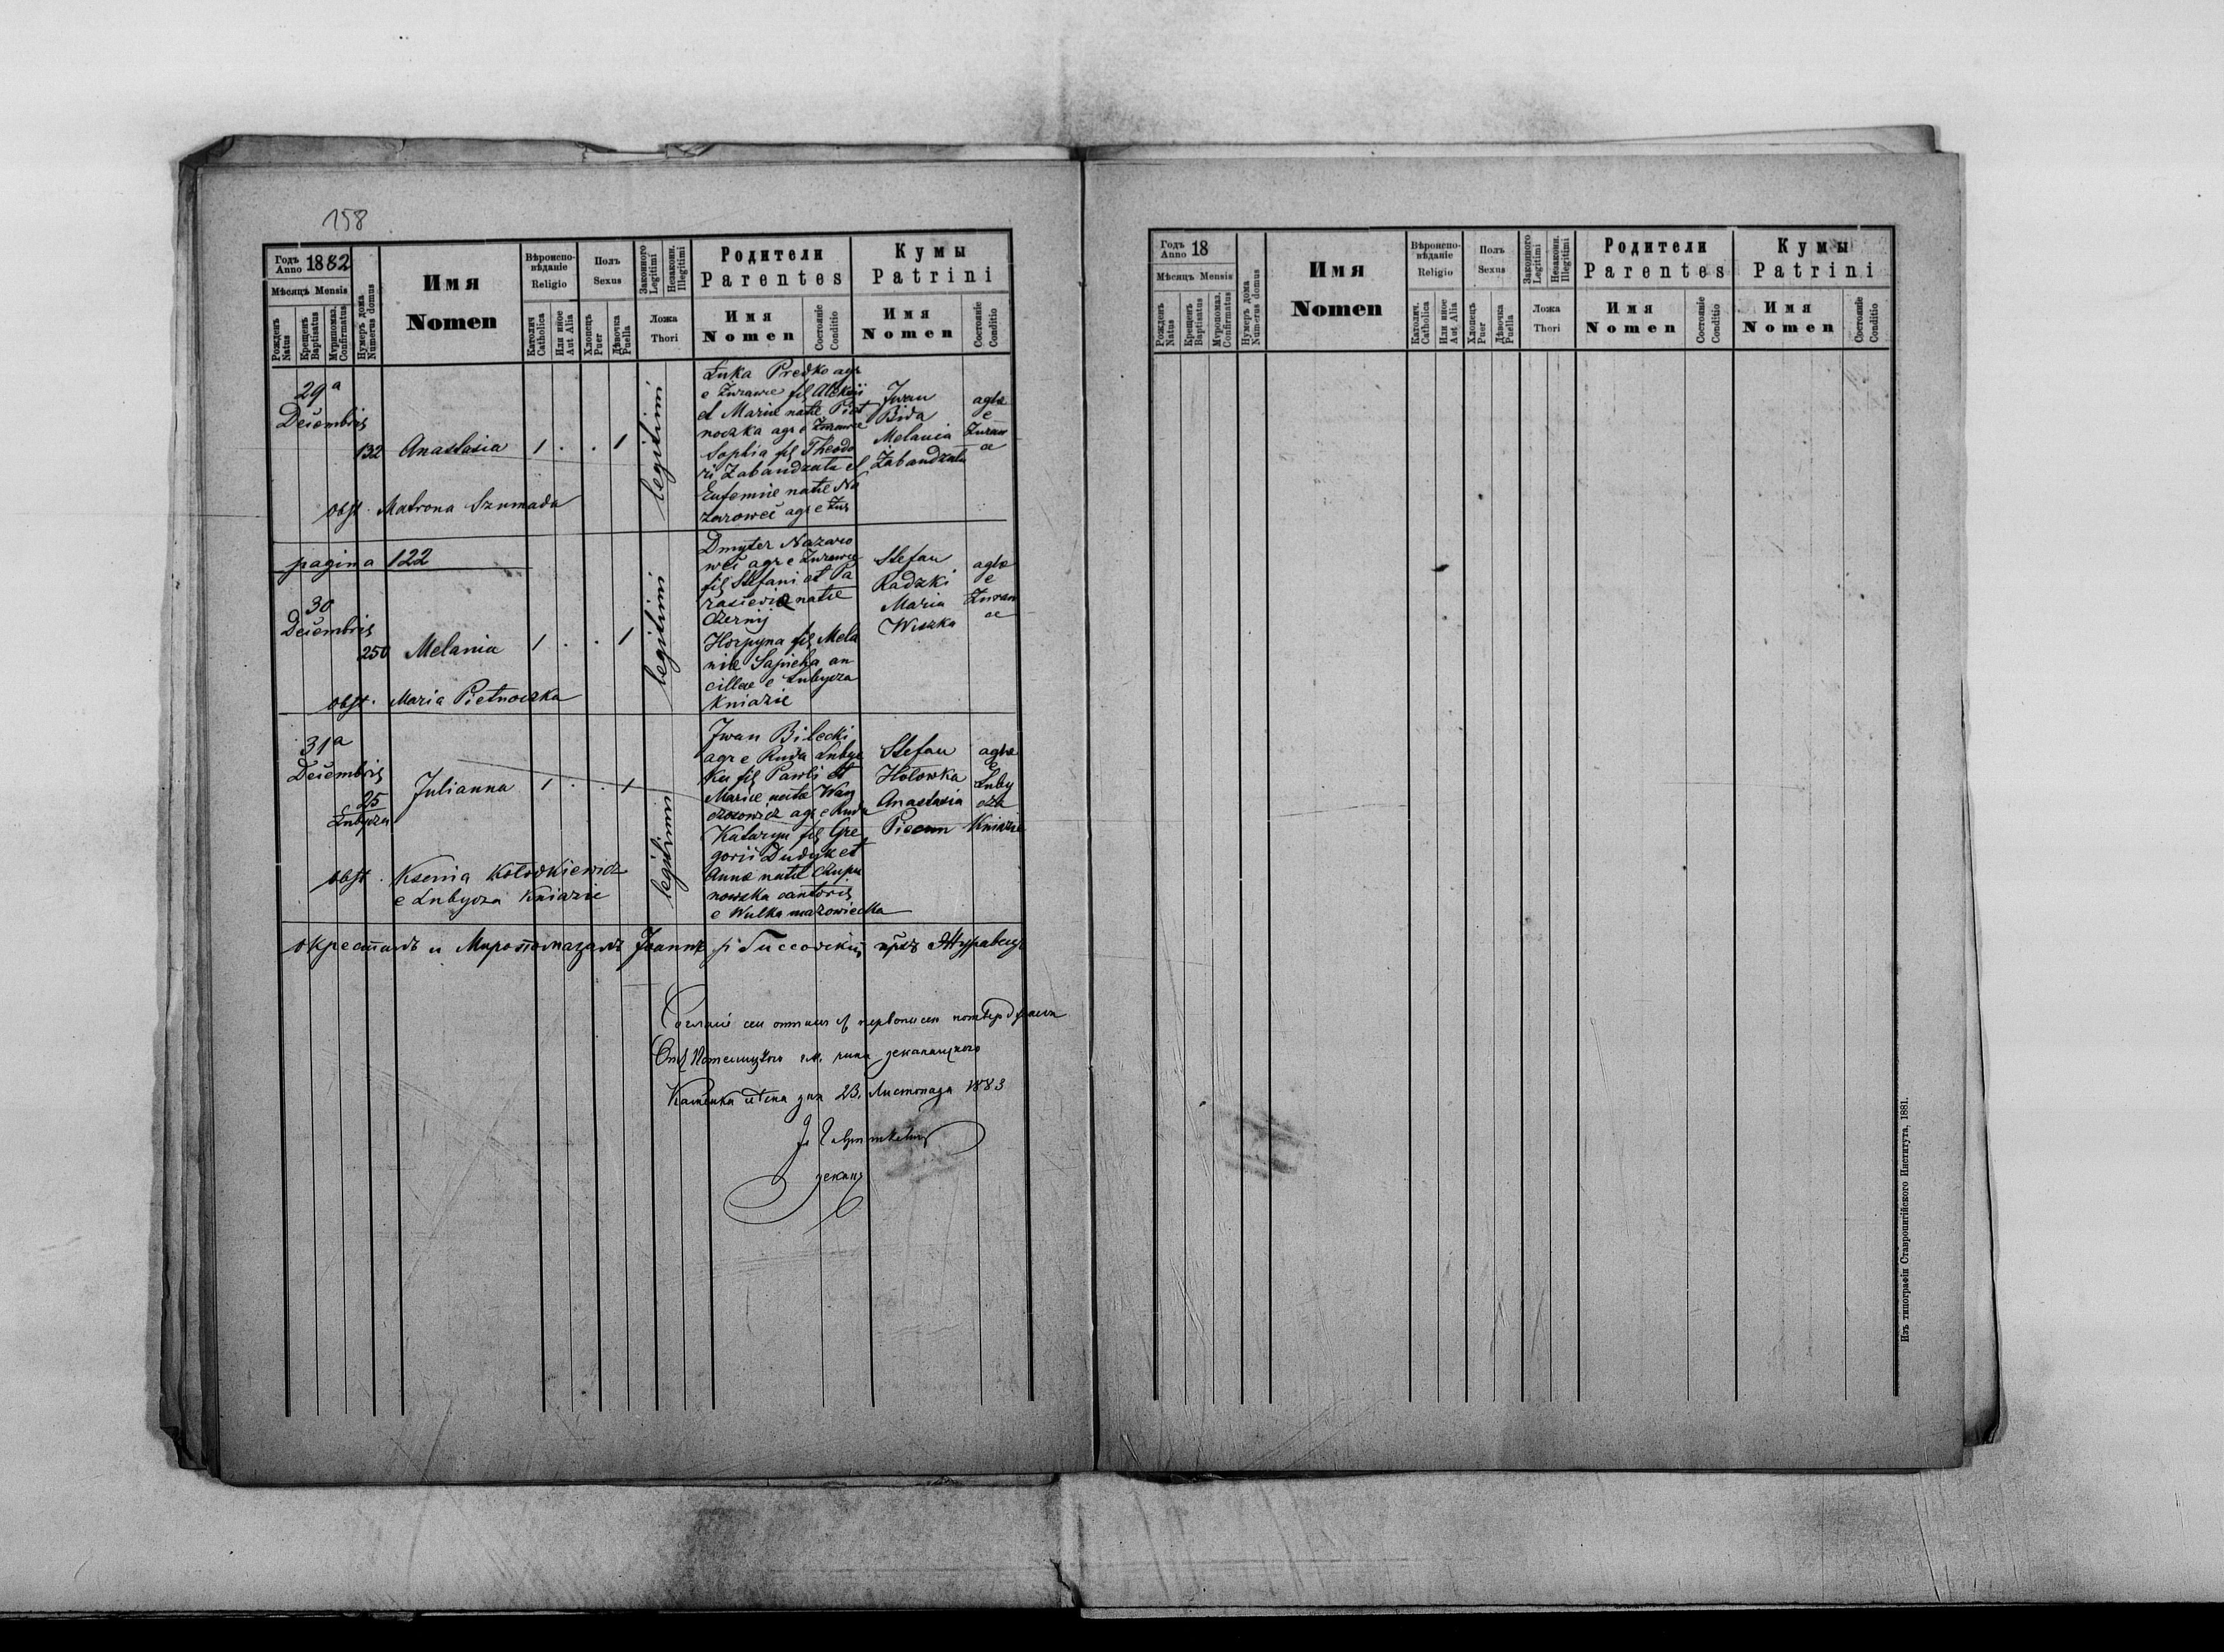 158
Годъ Anno 1882
Мѣсяцъ Mensis
Рожденъ Natus
Крещенъ Baptisatus
Мѵропомаз. Confirmatus
Нумеръ дома Numerus domus
Имя
Nomen
Вѣроиспо-вѣданіе
Religio
Католич. Catholica
Или иное Aut Alia
Полъ
Sexus
Хлопецъ Puer
Дѣвочка Puella
Законного Legitimi
Незаконн. Illegitimi
Ложа
Thori
Родители
Parentes
Имя
Nomen
Состояніе Conditio
Кумы
Patrini
Имя
Nomen
Состояніе Conditio
29a
Decembris
132 Anastasia 1 . . 1
legitimi
Luka Predko agr
e Zurawce fil Aleksii
et Mariæ natæ Piet
noczka agr e Zurawce
Sophia fil Theodo
ri Zabandzala et
Eufemiæ natæ Na
zarowci agr e Zur
Iwan
Bida
Melania
Zabandzala
agræ
e
Zuraw
ce
obst. Matrona Szumada
pagina 122
30
Decembris
250 Melania 1 . . 1
legitimi
Dmyter Nazaro
wci agr e Zurawce
fil Stefani et Pa
rasceviæ natæ
Czernij
Horpyna fil Mela
niæ Sapieha an
cillæ e Lubycza
Kniazie
Stefan
Radzki
Maria
Wuszka
agræ
e
Zuraw
ce
obst. Maria Pietnoczka
31a
Decembris
25
Lubycza
Julianna 1 . . 1
legitimi
Iwan Bilecki
agr e Ruda Lubyc
ka fil Pawli et
Mariæ natæ Wan
czosowicz agr e Ruda
Kataryn fil Gre
gorii Dudyk et
Annæ natæ Czupu
nowska cantoris
e Wulka mazowiecka
Stefan
Hołowka
Anastasia
Piecun
agræ
e
Luby
cza
Kniazie
obst. Ksenia Kołodkiewicz
e Lubycza Kniazie
окрестилъ и Миропомазалъ Іоаннъ Гиссовскій прхъ Журавцѣ
Согласіе сеи отписи съ первописею потвердзаеся
Отъ Потелицкого чина деканицкого
Каменка дня 23. Листопада 1883
деканъ
Годъ Anno 18
Мѣсяцъ Mensis
Рожденъ Natus
Крещенъ Baptisatus
Мѵропомаз. Confirmatus
Нумеръ дома Numerus domus
Имя
Nomen
Вѣроиспо-вѣданіе
Religio
Католич. Catholica
Или иное Aut Alia
Полъ
Sexus
Хлопецъ Puer
Дѣвочка Puella
Законного Legitimi
Незаконн. Illegitimi
Ложа
Thori
Родители
Parentes
Имя
Nomen
Состояніе Conditio
Кумы
Patrini
Имя
Nomen
Состояніе Conditio
Изъ типографіи Ставропигійского Института, 1881.